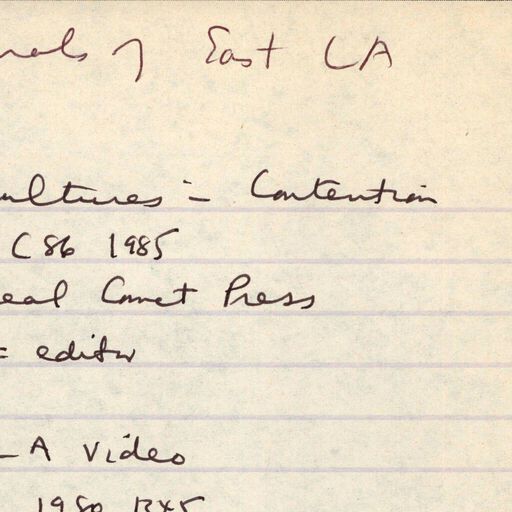 rals of East LA
ultures in Contention
C86 1985
eal Comet Press
= editor
LA Video
1980